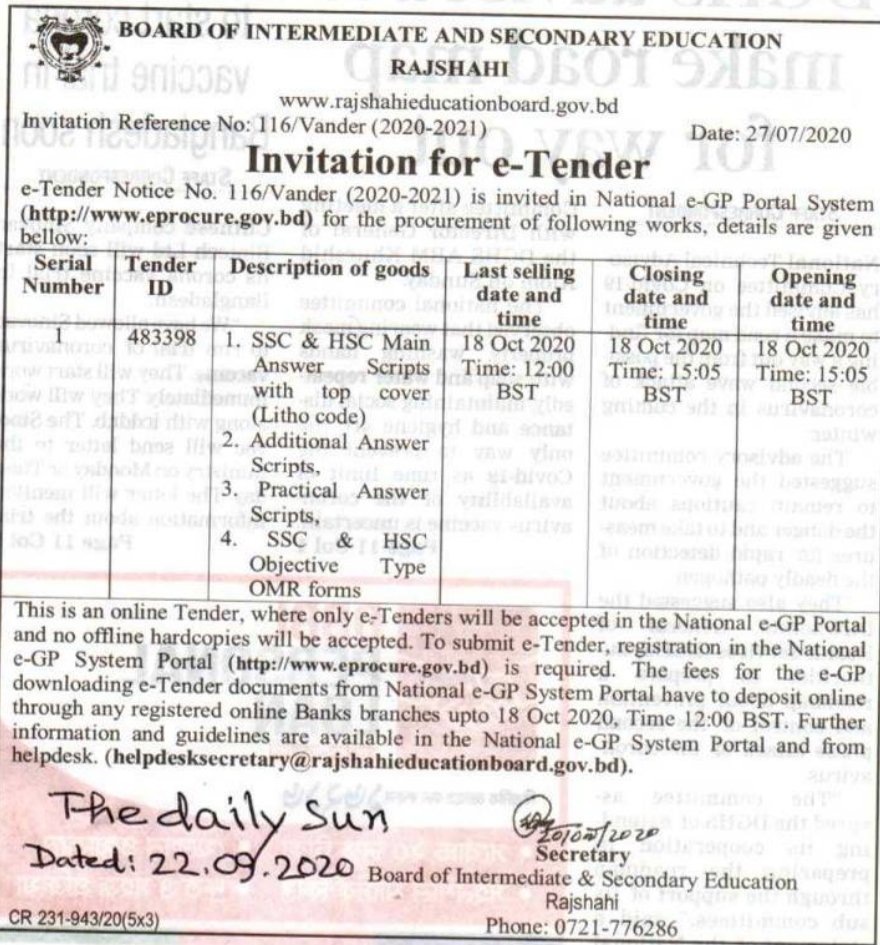 BOARD OF INTERMEDIATE AND SECONDARY EDUCATION
RAJSHAHI
www.rajshahieducationboard.gov.bd
Invitation Reference No: 116/Vander (2020-2021) Date: 27/07/2020
Invitation for e-Tender
e-Tender Notice No. 116/Vander (2020-2021) is invited in National e-GP Portal System
(http://www.eprocure.gov.bd) for the procurement of following works, details are given
bellow:
Serial Number Tender ID Description of goods Last selling date and time Closing date and time Opening date and time
1 483398 1. SSC & HSC Main 18 Oct 2020 18 Oct 2020 18 Oct 2020
Answer Scripts Time: 12:00 Time: 15:05 Time: 15:05
with top cover BST BST BST
(Litho code)
2. Additional Answer
Scripts,
3. Practical Answer
Scripts,
4. SSC & HSC
Objective Type
OMR forms
This is an online Tender, where only e-Tenders will be accepted in the National e-GP Portal
and no offline hardcopies will be accepted. To submit e-Tender, registration in the National
e-GP System Portal (http://www.eprocure.gov.bd) is required. The fees for the e-GP
downloading e-Tender documents from National e-GP System Portal have to deposit online
through any registered online Banks branches upto 18 Oct 2020, Time 12:00 BST. Further
information and guidelines are available in the National e-GP System Portal and from
helpdesk. (helpdesksecretary@rajshahieducationboard.gov.bd).
The daily Sun
Dated: 22.09.2020
Secretary
Board of Intermediate & Secondary Education
Rajshahi
Phone: 0721-776286
CR 231-943/20(5x3)